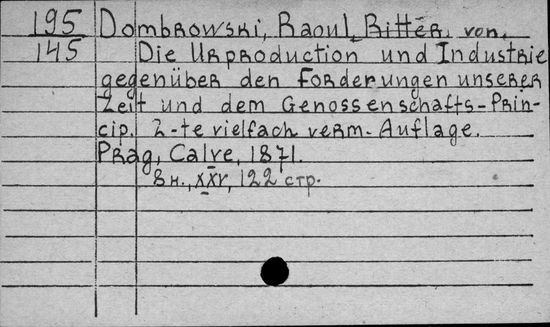 195 Dombrowski, Raoul Ritter von.
145 Die Urproduction und Industrie
gegenüber den Forderungen unserer
Zeit und dem Genossenschafts-Prin-
cip. 2-te vielfach verm. Auflage.
Prag, Calve, 1871.
8н., XXV, 122 стр.